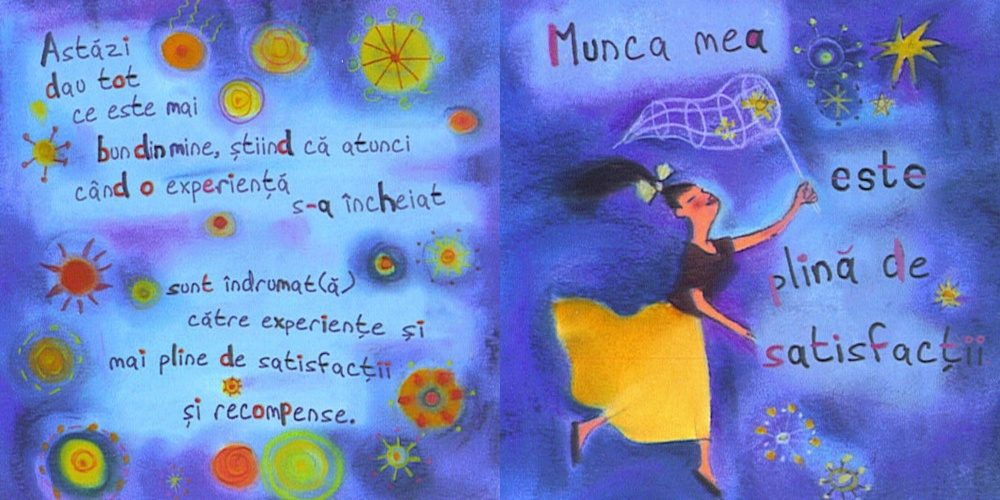 Astăzi
dau tot
ce este mai
bun din mine, știind că atunci
când o experiență
s-a încheiat
sunt îndrumat(ă)
către experiențe și
mai pline de satisfacții
și recompense.
Munca mea
este
plină de
satisfacții